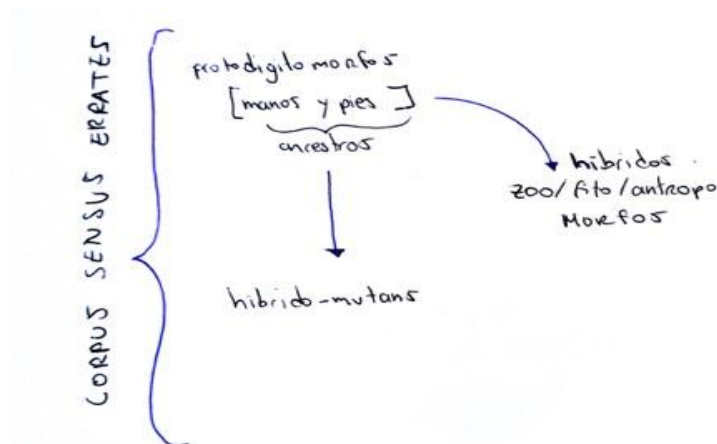 CORPUS SENSUS ERRATES
protodigitomorfos
[manos y pies]
ancestros
híbridos
zoo/fito/antropo
MORFOS
hibrido-mutans